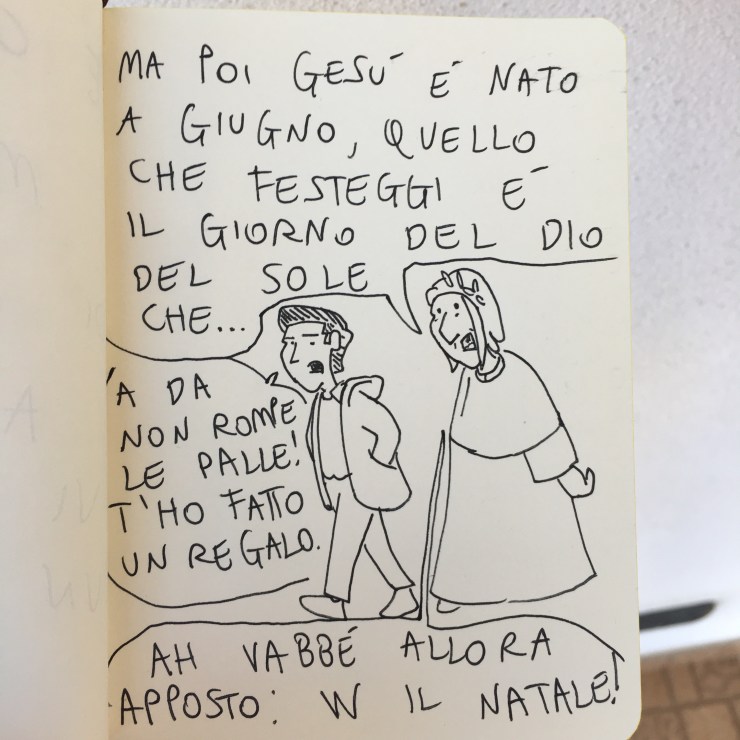 MA POI GESÚ É NATO
A GIUGNO, QUELLO
CHE FESTEGGI É
IL GIORNO DEL DIO
DEL SOLE
CHE...
'A DA
NON ROMPE
LE PALLE!
T'HO FATTO
UN REGALO.
AH VABBÉ ALLORA
APPOSTO: W IL NATALE!